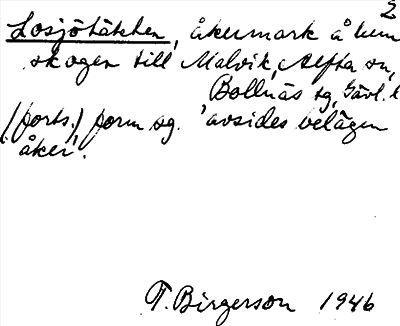 2
Losjötäkten, åkermark å hem
skogen till Malvik, Alfta sn,
Bollnäs sg, Gävl. l
(forts.) form sg. 'avsides belägen
åker'.
T. Birgerson 1946